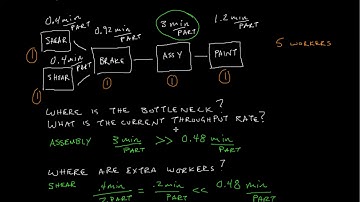 0.4 min/PART
SHEAR
1
0.4 min/PART
SHEAR
1
0.92 min/PART
BRAKE
1
3 min/PART
ASSY
1
1.2 min/PART
PAINT
1
5 WORKERS
WHERE IS THE BOTTLENECK?
WHAT IS THE CURRENT THROUGHPUT RATE?
ASSEMBLY 3 min/PART >> 0.48 min/PART
WHERE ARE EXTRA WORKERS?
SHEAR .4 min/2 PART = .2 min/PART << 0.48 min/PART